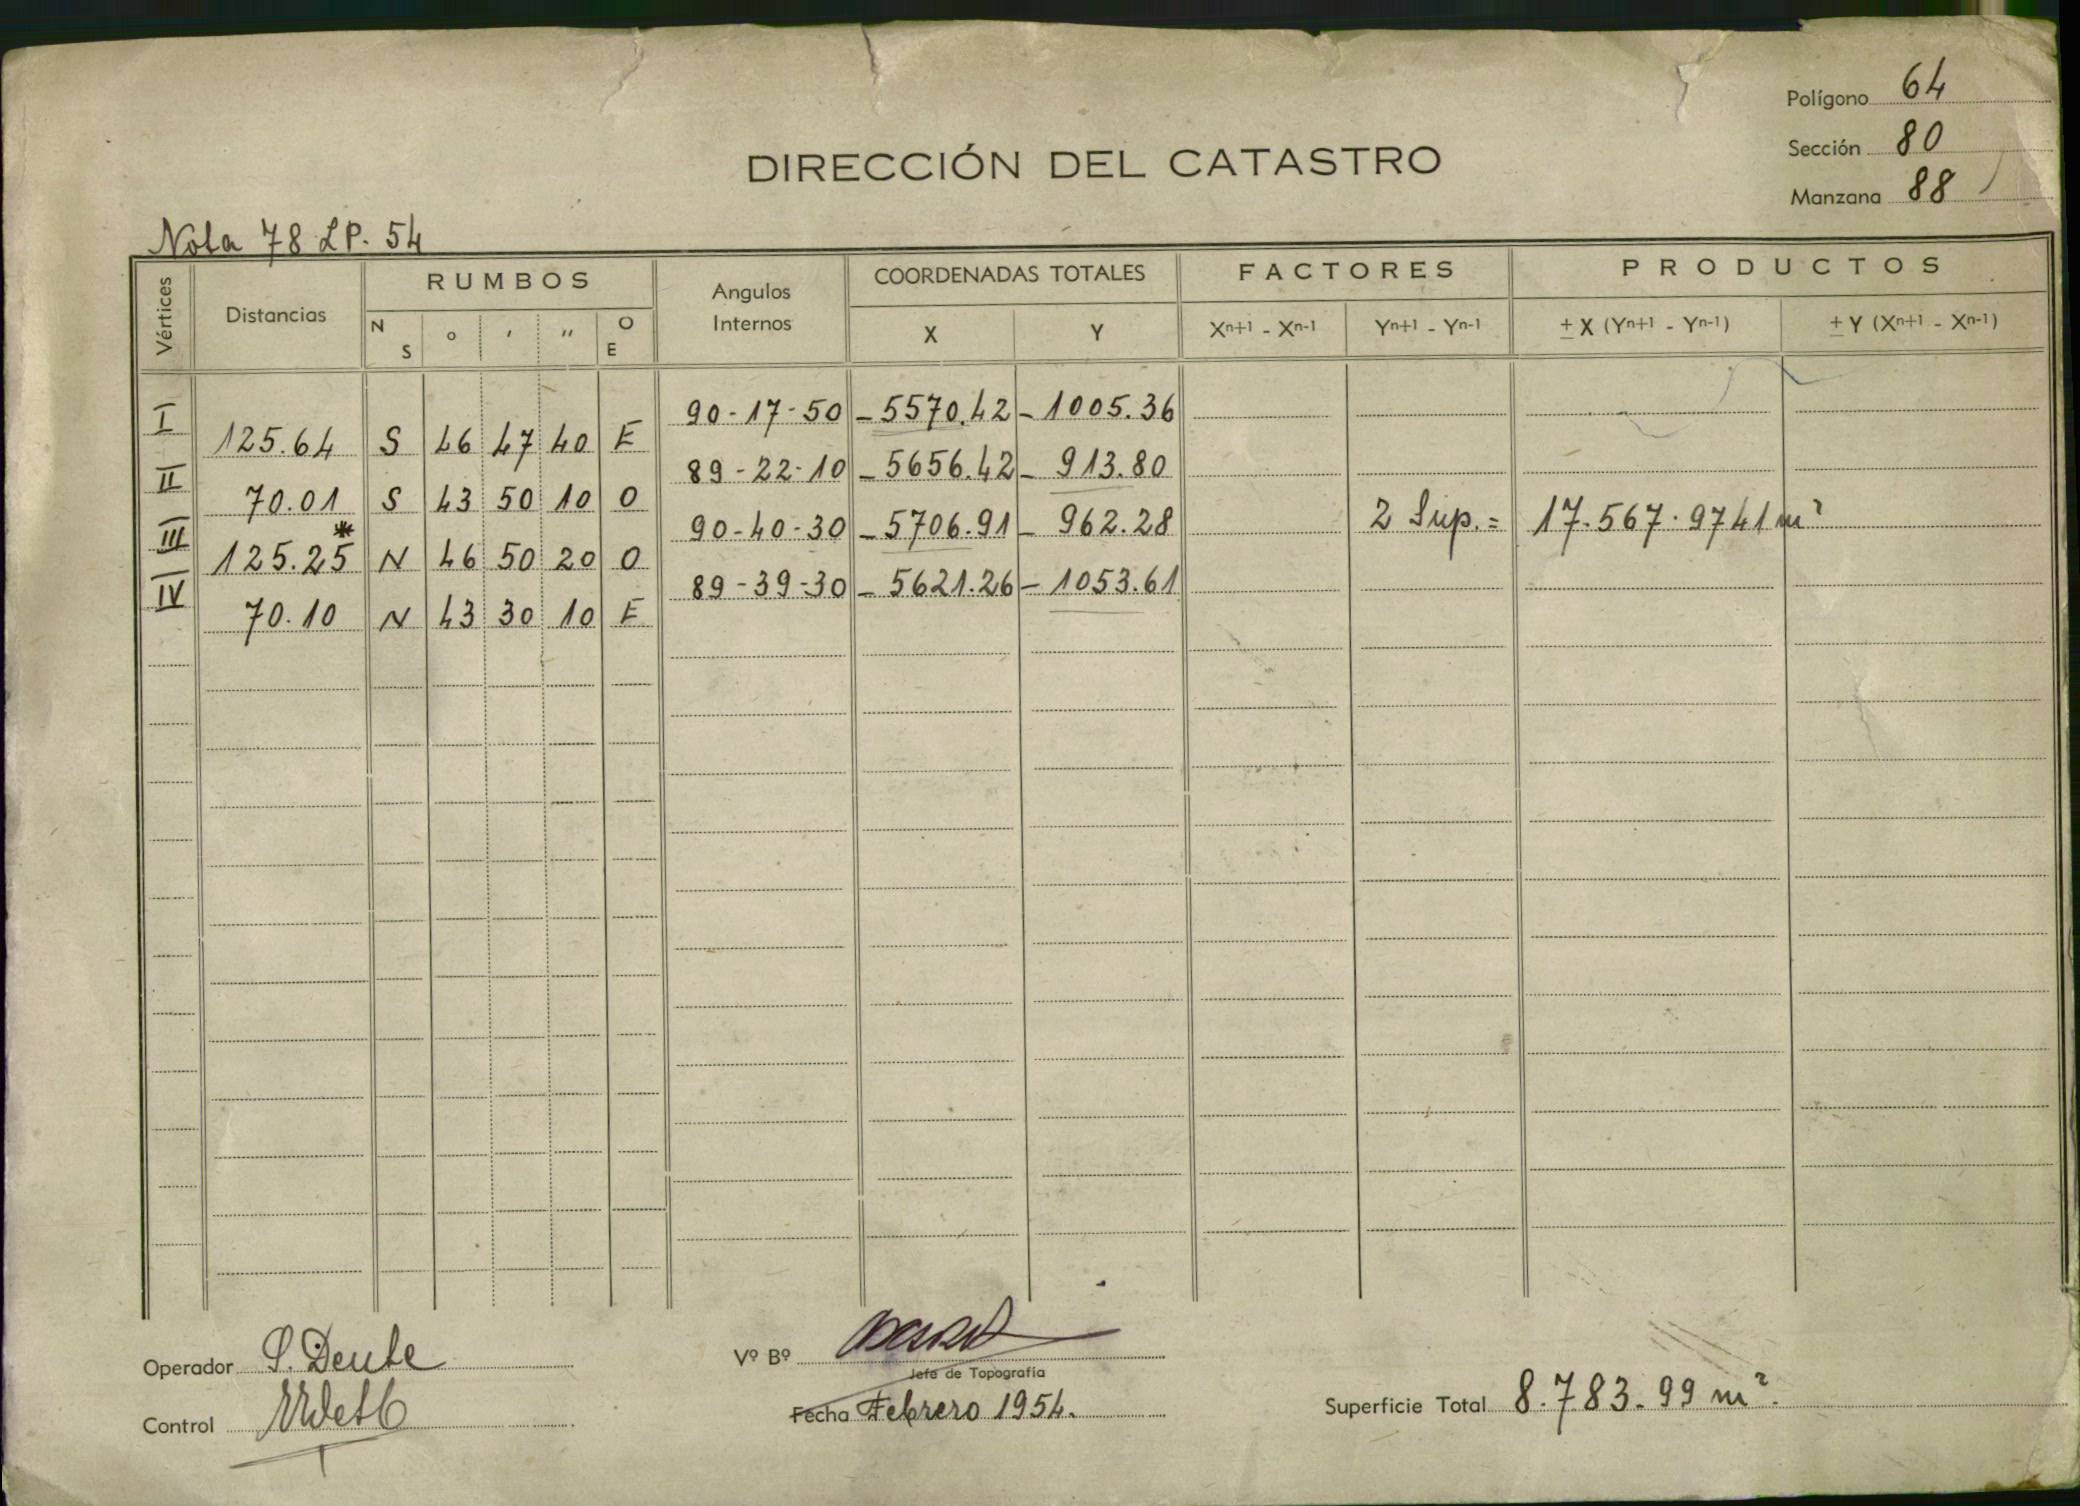 Polígono 64
Sección 80
DIRECCIÓN DEL CATASTRO
Manzana 88
Nota 78 LP. 54
Vértices Distancias RUMBOS Angulos Internos COORDENADAS TOTALES FACTORES PRODUCTOS
N S ° ' " O E X Y Xn+1 - Xn-1 Yn+1 - Yn-1 ± X (Yn+1 - Yn-1) ± Y (Xn+1 - Xn-1)
I 90-17-50 -5570.42 -1005.36
125.64 S 46 47 40 E
II 89-22-10 -5656.42 - 913.80
70.01 S 43 50 10 O
III 90-40-30 -5706.91 - 962.28 2 Sup. = 17.567.9741 m²
125.25* N 46 50 20 O
IV 89-39-30 - 5621.26 - 1053.61
70.10 N 43 30 10 E
Operador S. Deute
Vº Bº
Jefe de Topografía
Control
Fecha Febrero 1954.
Superficie Total 8.783.99 m².